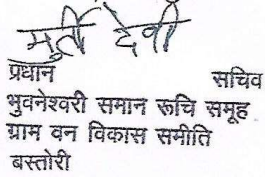 मुर्ती देवी
प्रधान सचिव
भुवनेश्वरी समान रूचि समूह
ग्राम वन विकास समीति
बस्तोरी